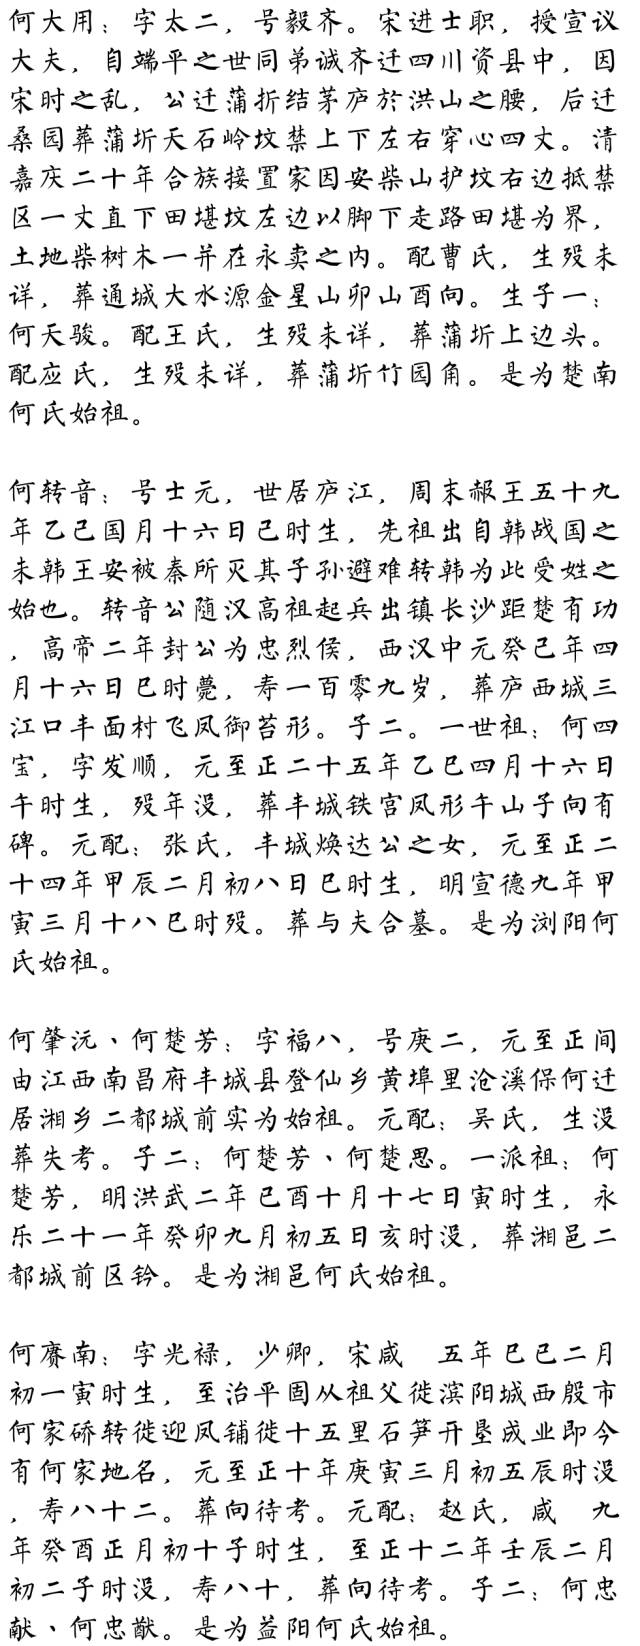 何大用：字太二，号毅齐。宋进士职，授宣议
大夫，自端平之世同弟诚齐迁四川资县中，因
宋时之乱，公迁蒲折结茅庐於洪山之腰，后迁
桑园葬蒲圻天石岭坟禁上下左右穿心四丈。清
嘉庆二十年合族接置家因安柴山护坟右边抵禁
区一丈直下田堪坟左边以脚下走路田堪为界，
土地柴树木一并在永卖之内。配曹氏，生殁未
详，葬通城大水源金星山卯山酉向。生子一：
何天骏。配王氏，生殁未详，葬蒲圻上边头。
配应氏，生殁未详，葬蒲圻竹园角。是为楚南
何氏始祖。
何转音：号士元，世居庐江，周末赧王五十九
年乙己国月十六日己时生，先祖出自韩战国之
未韩王安被秦所灭其子孙避难转韩为此受姓之
始也。转音公随汉高祖起兵出镇长沙距楚有功
，高帝二年封公为忠烈侯，西汉中元癸己年四
月十六日巳时薨，寿一百零九岁，葬庐西城三
江口丰面村飞凤御苔形。子二。一世祖：何四
宝，字发顺，元至正二十五年乙巳四月十六日
午时生，殁年没，葬丰城铁宫凤形午山子向有
碑。元配：张氏，丰城焕达公之女，元至正二
十四年甲辰二月初八日巳时生，明宣德九年甲
寅三月十八巳时殁。葬与夫合墓。是为浏阳何
氏始祖。
何肇沅、何楚芳：字福八，号庚二，元至正间
由江西南昌府丰城县登仙乡黄埠里沧溪保何迁
居湘乡二都城前实为始祖。元配：吴氏，生没
葬失考。子二：何楚芳、何楚思。一派祖：何
楚芳，明洪武二年己酉十月十七日寅时生，永
乐二十一年癸卯九月初五日亥时没，葬湘邑二
都城前区钤。是为湘邑何氏始祖。
何赓南：字光禄，少卿，宋咸　五年巳己二月
初一寅时生，至治平固从祖父徙滨阳城西殷市
何家硚转徙迎凤铺徙十五里石笋开垦成业即今
有何家地名，元至正十年庚寅三月初五辰时没
，寿八十二。葬向待考。元配：赵氏，咸　九
年癸酉正月初十子时生，至正十二年壬辰二月
初二子时没，寿八十，葬向待考。子二：何忠
献、何忠猷。是为益阳何氏始祖。